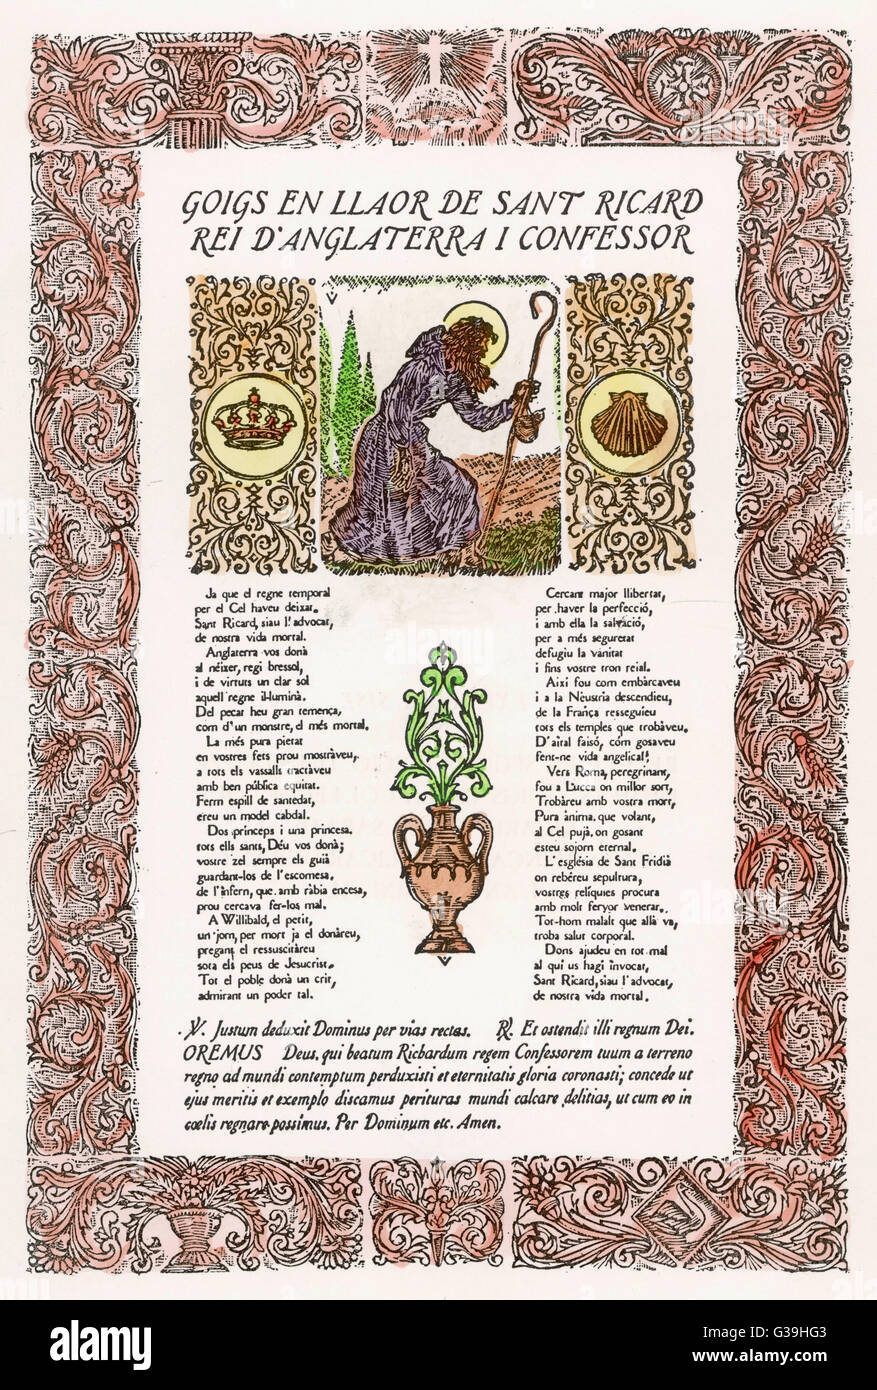 GOIGS EN LLAOR DE SANT RICARD
REI D'ANGLATERRA I CONFESSOR
Ja que el regne temporal
per el Cel haveu deixat.
Sant Ricard, siau l'advocat,
de nostra vida mortal.
Anglaterra vos donà
al néixer, regi bressol,
i de virtuts un clar sol
aquell regne il·luminà.
Del pecar heu gran temença,
com d'un monstre, el més mortal.
La més pura pietat
en vostres fets prou mostràveu,
a tots els vassalls tractàveu
amb ben pública equitat.
Ferm espill de santedat,
ereu un model cabdal.
Dos prínceps i una princesa.
tots ells sants, Déu vos donà;
vostre zel sempre els guià
guardant-los de l'escomesa.
de l'infern, que amb ràbia encesa,
prou cercava fer-los mal.
A Willibald, el petit,
un jorn, per mort ja el donàreu,
pregant el ressuscitàreu
sota els peus de Jesucrist.
Tot el poble donà un crit,
admirant un poder tal.
Cercant major llibertat,
per haver la perfecció,
i amb ella la salvació,
per a més seguretat
defugiu la vanitat
i fins vostre tron reial.
Així fou com embàrcaveu
i a la Nèustria descendíeu,
de la França resseguíeu
tots els temples que trobàveu.
D'aital faisó, com gosaveu
fent-ne vida angelical.
Vers Roma, peregrinant,
fou a Lucca on millor sort,
Trobàreu amb vostra mort,
Pura ànima, que volant,
al Cel pujà, on gosant
esteu sojorn eternal.
L'església de Sant Fridià
on rebéreu sepultura,
vostres relíquies procura
amb molt fervor venerar.
Tot-hom malalt que allà va,
troba salut corporal.
Dons ajudeu en tot mal
al qui us hagi invocat,
Sant Ricard, siau l'advocat,
de nostra vida mortal.
℣. Justum deduxit Dominus per vias rectas. ℟. Et ostendit illi regnum Dei.
OREMUS Deus, qui beatum Richardum regem Confessorem tuum a terreno
regno ad mundi contemptum perduxisti et eternitatis gloria coronasti; concede ut
ejus meritis et exemplo discamus perituras mundi calcare delitias, ut cum eo in
cœlis regnare possimus. Per Dominum etc. Amen.
alamy
Image ID: G39HG3
www.alamy.com